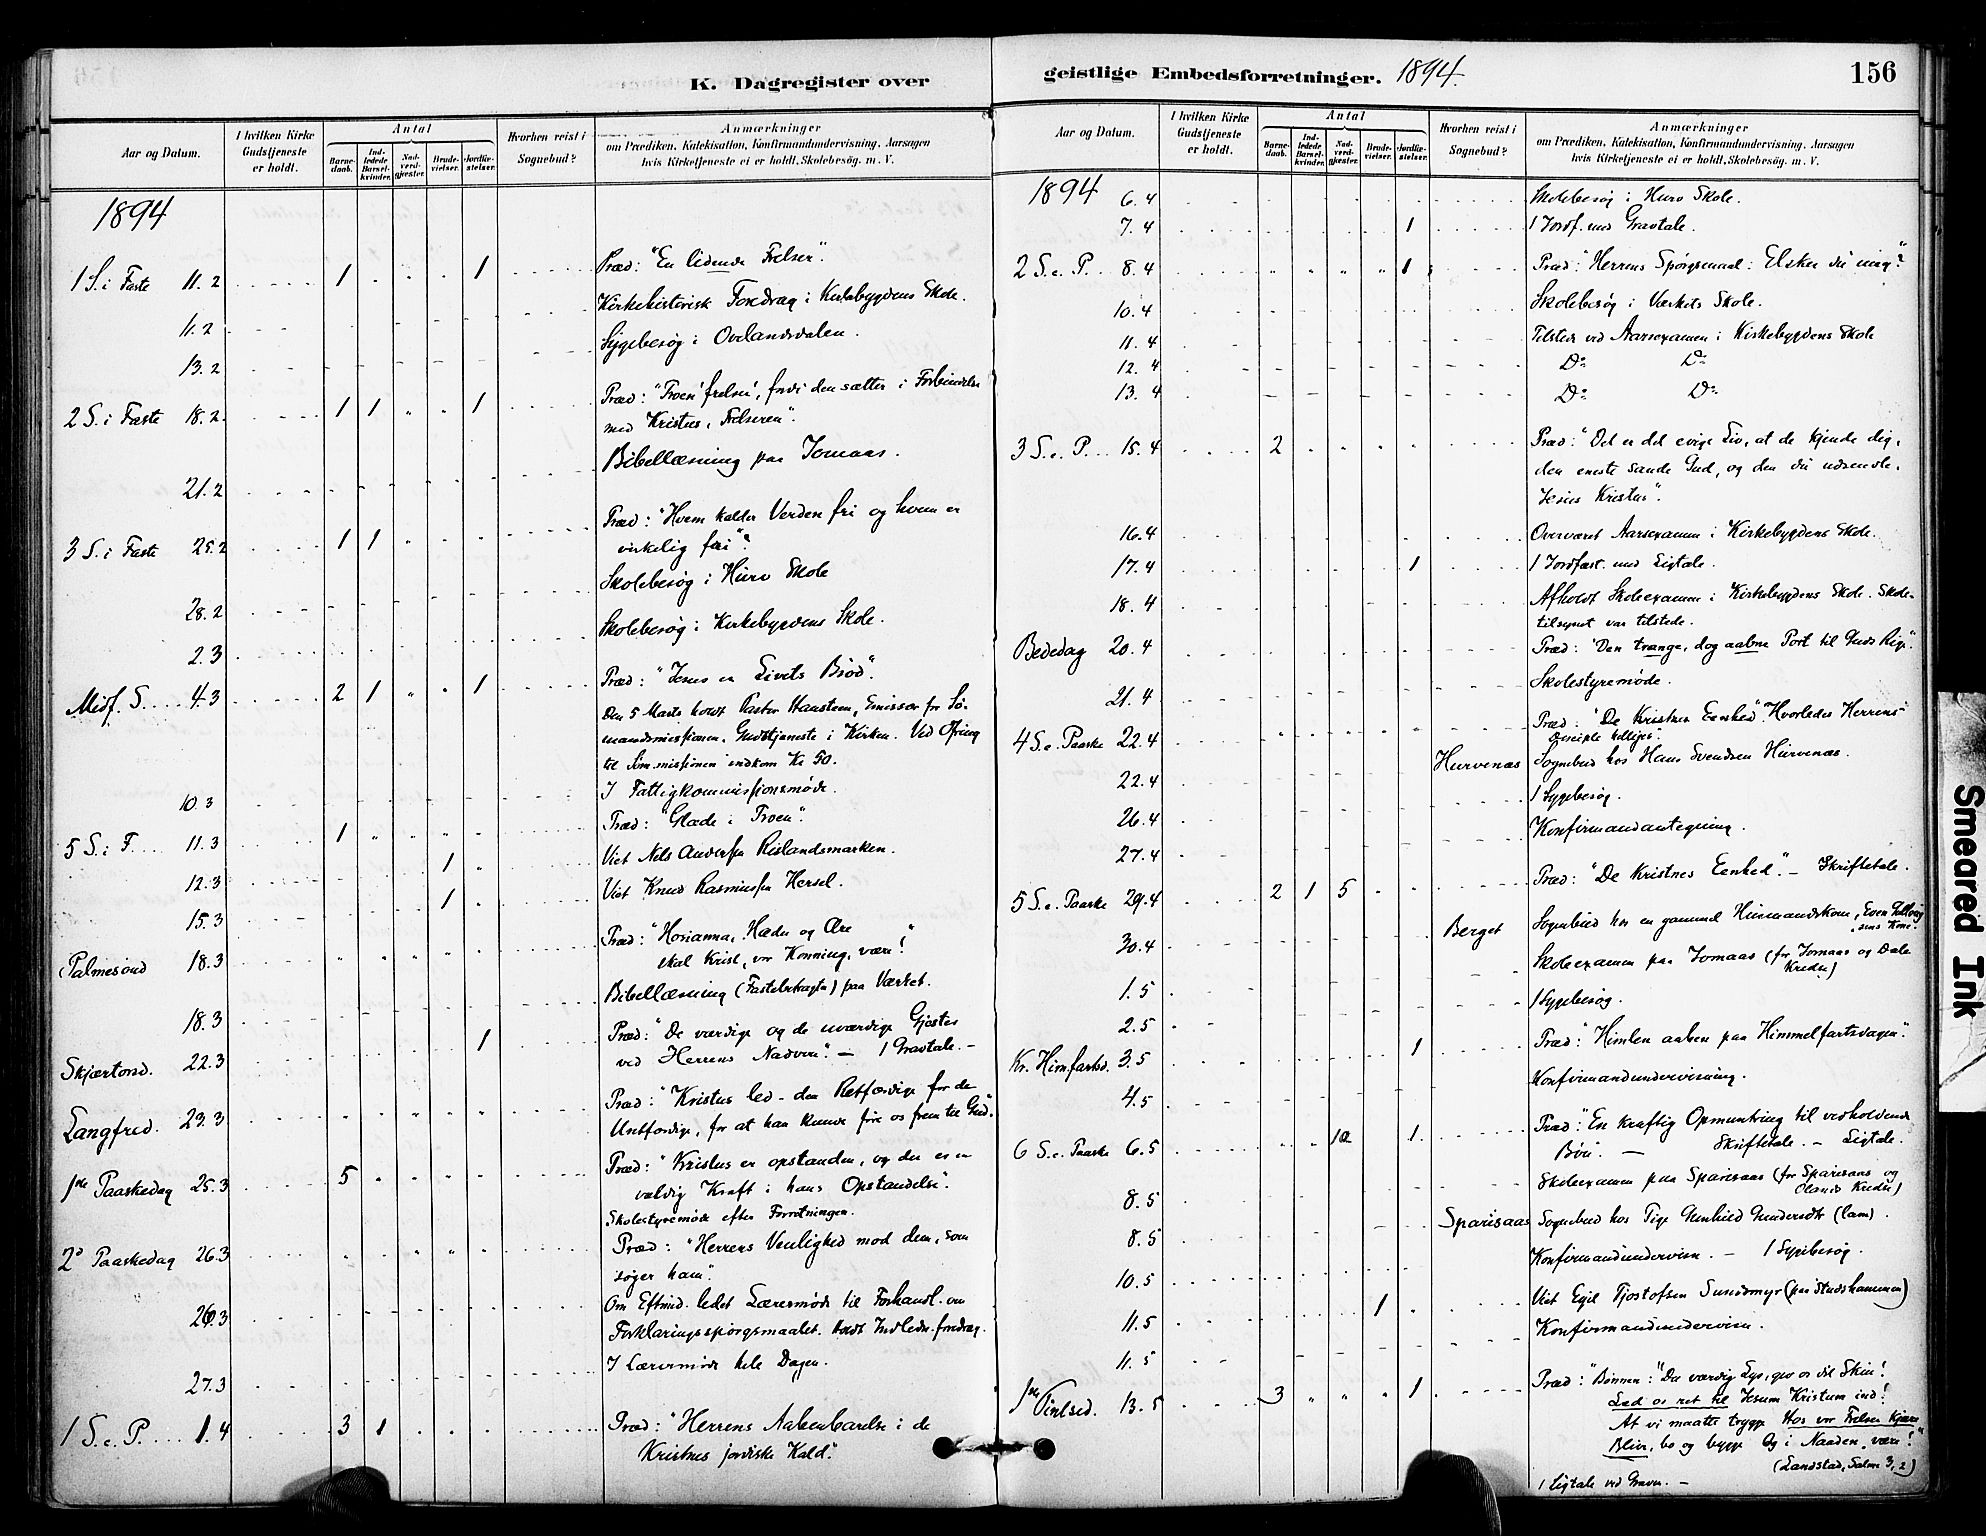 K. Dagregister over
Aar og Datum.
I hvilken Kirke Gudstjeneste er holdt.
Antal
Barnedaab.
Indledede Barselkvinder.
Nadverdgjester.
Brudevielser.
Jordfæstelser.
Hvorhen reist i Sognebud?
Anmærkninger
om Prædiken, Katekisation, Konfirmandundervisning, Aarsagen
hvis Kirketjeneste ei er holdt, Skolebesög. m. V.
1894
1 S. i Faste 11.2 1 1 Præd: "En lidende Frelser".
11.2 Kirkehistorisk Foredrag i Kirkebygdens Skole.
13.2 Sygebesøg i Ovelandsdalen.
2 S. i Faste 18.2 1 1 1 Præd: "Troen 'frelser', fordi den sætter i Forbindelse
med Kristus, Frelseren".
21.2 Bibellæsning paa Jomaas.
3 S. i Faste 25.2 1 1 Præd: "Hvem kalder Verden fri og hvem er
virkelig fri"?
28.2 Skolebesøg i Hurv Skole
2.3 Skolebesøg i Kirkebygdens Skole.
Midf. S. 4.3 2 1 1 Præd: "Jesus er Livets Brød".
Den 5 Marts holdt Pastor Haasteen, Emissær for Sø-
mandsmissionen, Gudstjeneste i Kirken. Ved Ofring
til Søm.missionen indkom Kr 50.
10.3 I Fattigkommissionsmøde.
5 S. i F. 11.3 1 Præd: "Glæde i Troen".
12.3 1 Viet Nels Andersen Rislandsmarken.
15.3 1 Viet Knud Rasmussen Hersel.
Palmesønd 18.3 Præd: "Hosianna, Hæder og Ære
skal Krist, vor Konning, være!
18.3 Bibellæsning (Fastebetragtn) paa Værket.
Skjærtorsd. 22.3 1 Præd: "De værdige og de uværdige Gjester
ved Herrens Nadver". — 1 Gravtale. —
Langfred. 23.3 Præd: "Kristus led - den Retfærdige for de
Uretfærdige, for at han kunde føre os frem til Gud".
1ste Paaskedag 25.3 5 Præd: "Kristus er opstanden, og der er en
vældig Kraft i hans Opstandelse".
Skolestyremøde efter Forretningen.
2d Paaskedag 26.3 Præd: "Herrens Venlighed mod dem, som
søger ham".
26.3 Om Eftmid. ledet Lærermøde til Forhandl. om
Forklaringsspørgsmaalet. Holdt Indledn.foredrag.
27.3 I Lærermøde hele Dagen.
1 S. e. P. 1.4 3 1 Præd: "Herrens Aabenbarelse i de
Kristnes jordiske Kald".
geistlige Embedsforretninger. 1894.
156
Aar og Datum.
I hvilken Kirke Gudstjeneste er holdt.
Antal
Barnedaab.
Indledede Barselkvinder.
Nadverdgjester.
Brudevielser.
Jordfæstelser.
Hvorhen reist i Sognebud?
Anmærkninger
om Prædiken, Katekisation, Konfirmandundervisning, Aarsagen
hvis Kirketjeneste ei er holdt, Skolebesög. m. V.
1894 6.4 Skolebesøg i Hurv Skole.
7.4 1 1 Jordf. med Gravtale.
2 S. e. P. 8.4 1 Præd: "Herrens Spørgsmaal: Elsker du mig"?
10.4 Skolebesøg i Værkets Skole.
11.4 Tilstede ved Aarsexamen i Kirkebygdens Skole
12.4 Do Do
13.4 Do Do
3 S. e. P. 15.4 2 Præd: "Det er det evige Liv, at de kjende dig,
den eneste sande Gud, og den du udsendte,
Jesus Kristus".
16.4 Overværet Aarsexamen i Kirkebygdens Skole.
17.4 1 1 Jordfæst. med Ligtale.
18.4 Afholdt Skoleexamen i Kirkebygdens Skole. Skole-
tilsynet var tilstede.
Bededag 20.4 Præd: "Den trange, dog aabne Port til Guds Rige".
21.4 Skolestyremøde.
4 S. e. Paaske 22.4 Præd: "De Kristnes Eenhed". "Hvorledes Herrens
Disciple helliges".
22.4 Hurvenæs Sognebud hos Hans Svendsen Hurvenæs.
26.4 1 Sygebesøg.
27.4 Konfirmandantegning.
5 S. e. Paaske 29.4 2 1 5 Præd: "De Kristnes Eenhed". — Skriftetale.
30.4 Berget Sognebud hos en gammel Husmandskone, Even
sens Kone.
1.5 Skoleexamen paa Jomaas (for Jomaas og Dale
Kredse)
2.5 1 Sygebesøg.
Kr. Himfartsd. 3.5 1 Præd: "Himlen aaben paa Himmelfartsdagen".
4.5 Konfirmandundervisning.
6 S. e. Paaske 6.5 10 1 Præd: "En kraftig Opmuntring til vedholdende
Bøn. — Skriftetale. — Ligtale.
8.5 Skoleexamen paa Sparisaas (for Sparisaas og
Olands Kredse)
8.5 Sparisaas Sognebud hos Pige Gunhild Gundersdt (lam).
10.5 Konfirmandundervisn. — 1 Sygebesøg.
11.5 1 Viet Egil Tjostofsen Sundsmyr (paa Studskammen)
11.5 Konfirmandundervisn.
1ste Pintsed. 13.5 3 1 Præd: "Bønnen: "Du værdig Lys, giv os dit Skin!
Led os ret til Jesum Kristum ind!
At vi maatte trygge Hos vor Frelser kjære
Blive, bo og bygge Og i Naaden være!"
(Landstad, Salme 3,2)
1 Ligtale ved Graven. —
Smeared Ink